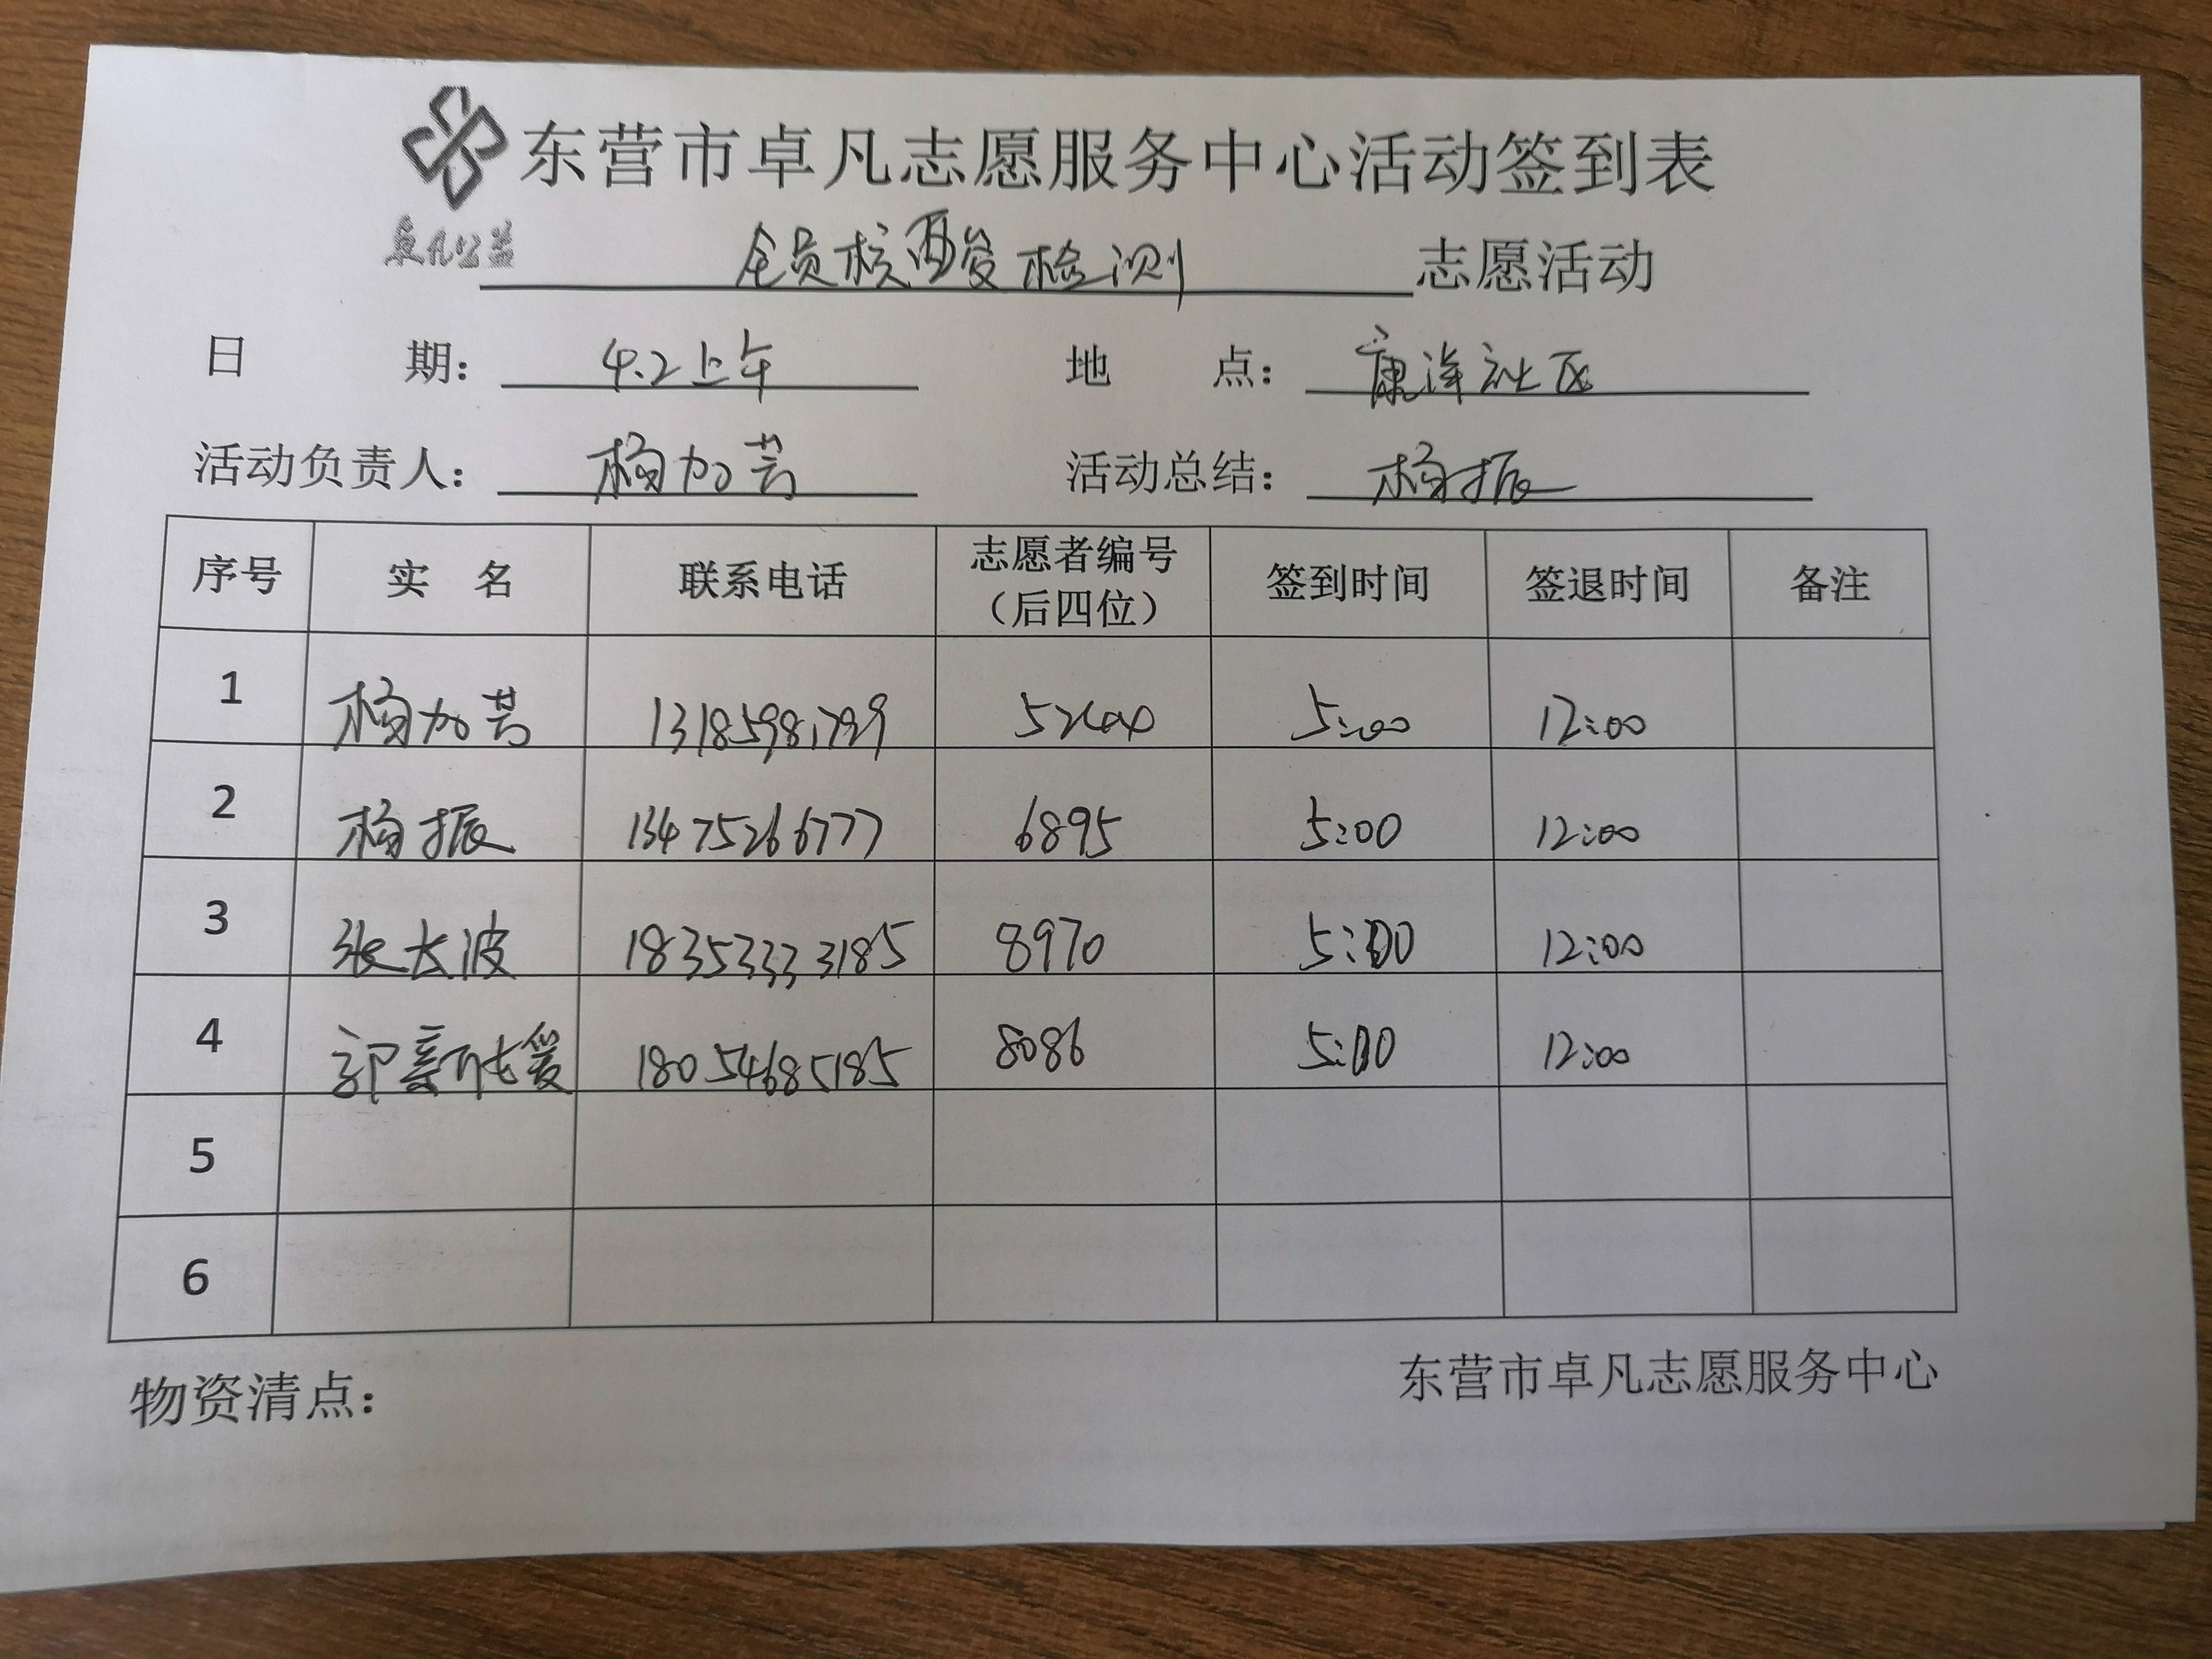 东营市卓凡志愿服务中心活动签到表
卓凡公益
全员核酸检测 志愿活动
日 期： 4.2上午 地 点： 康洋社区
活动负责人： 杨加芸 活动总结： 杨振
序号 实 名 联系电话 志愿者编号（后四位） 签到时间 签退时间 备注
1 杨加芸 5:00 12:00
2 杨振 13475266777 6895 5:00 12:00
3 张长波 18353333185 8970 5:00 12:00
4 18054685185 8086 5:00 12:00
5
6
物资清点：
东营市卓凡志愿服务中心